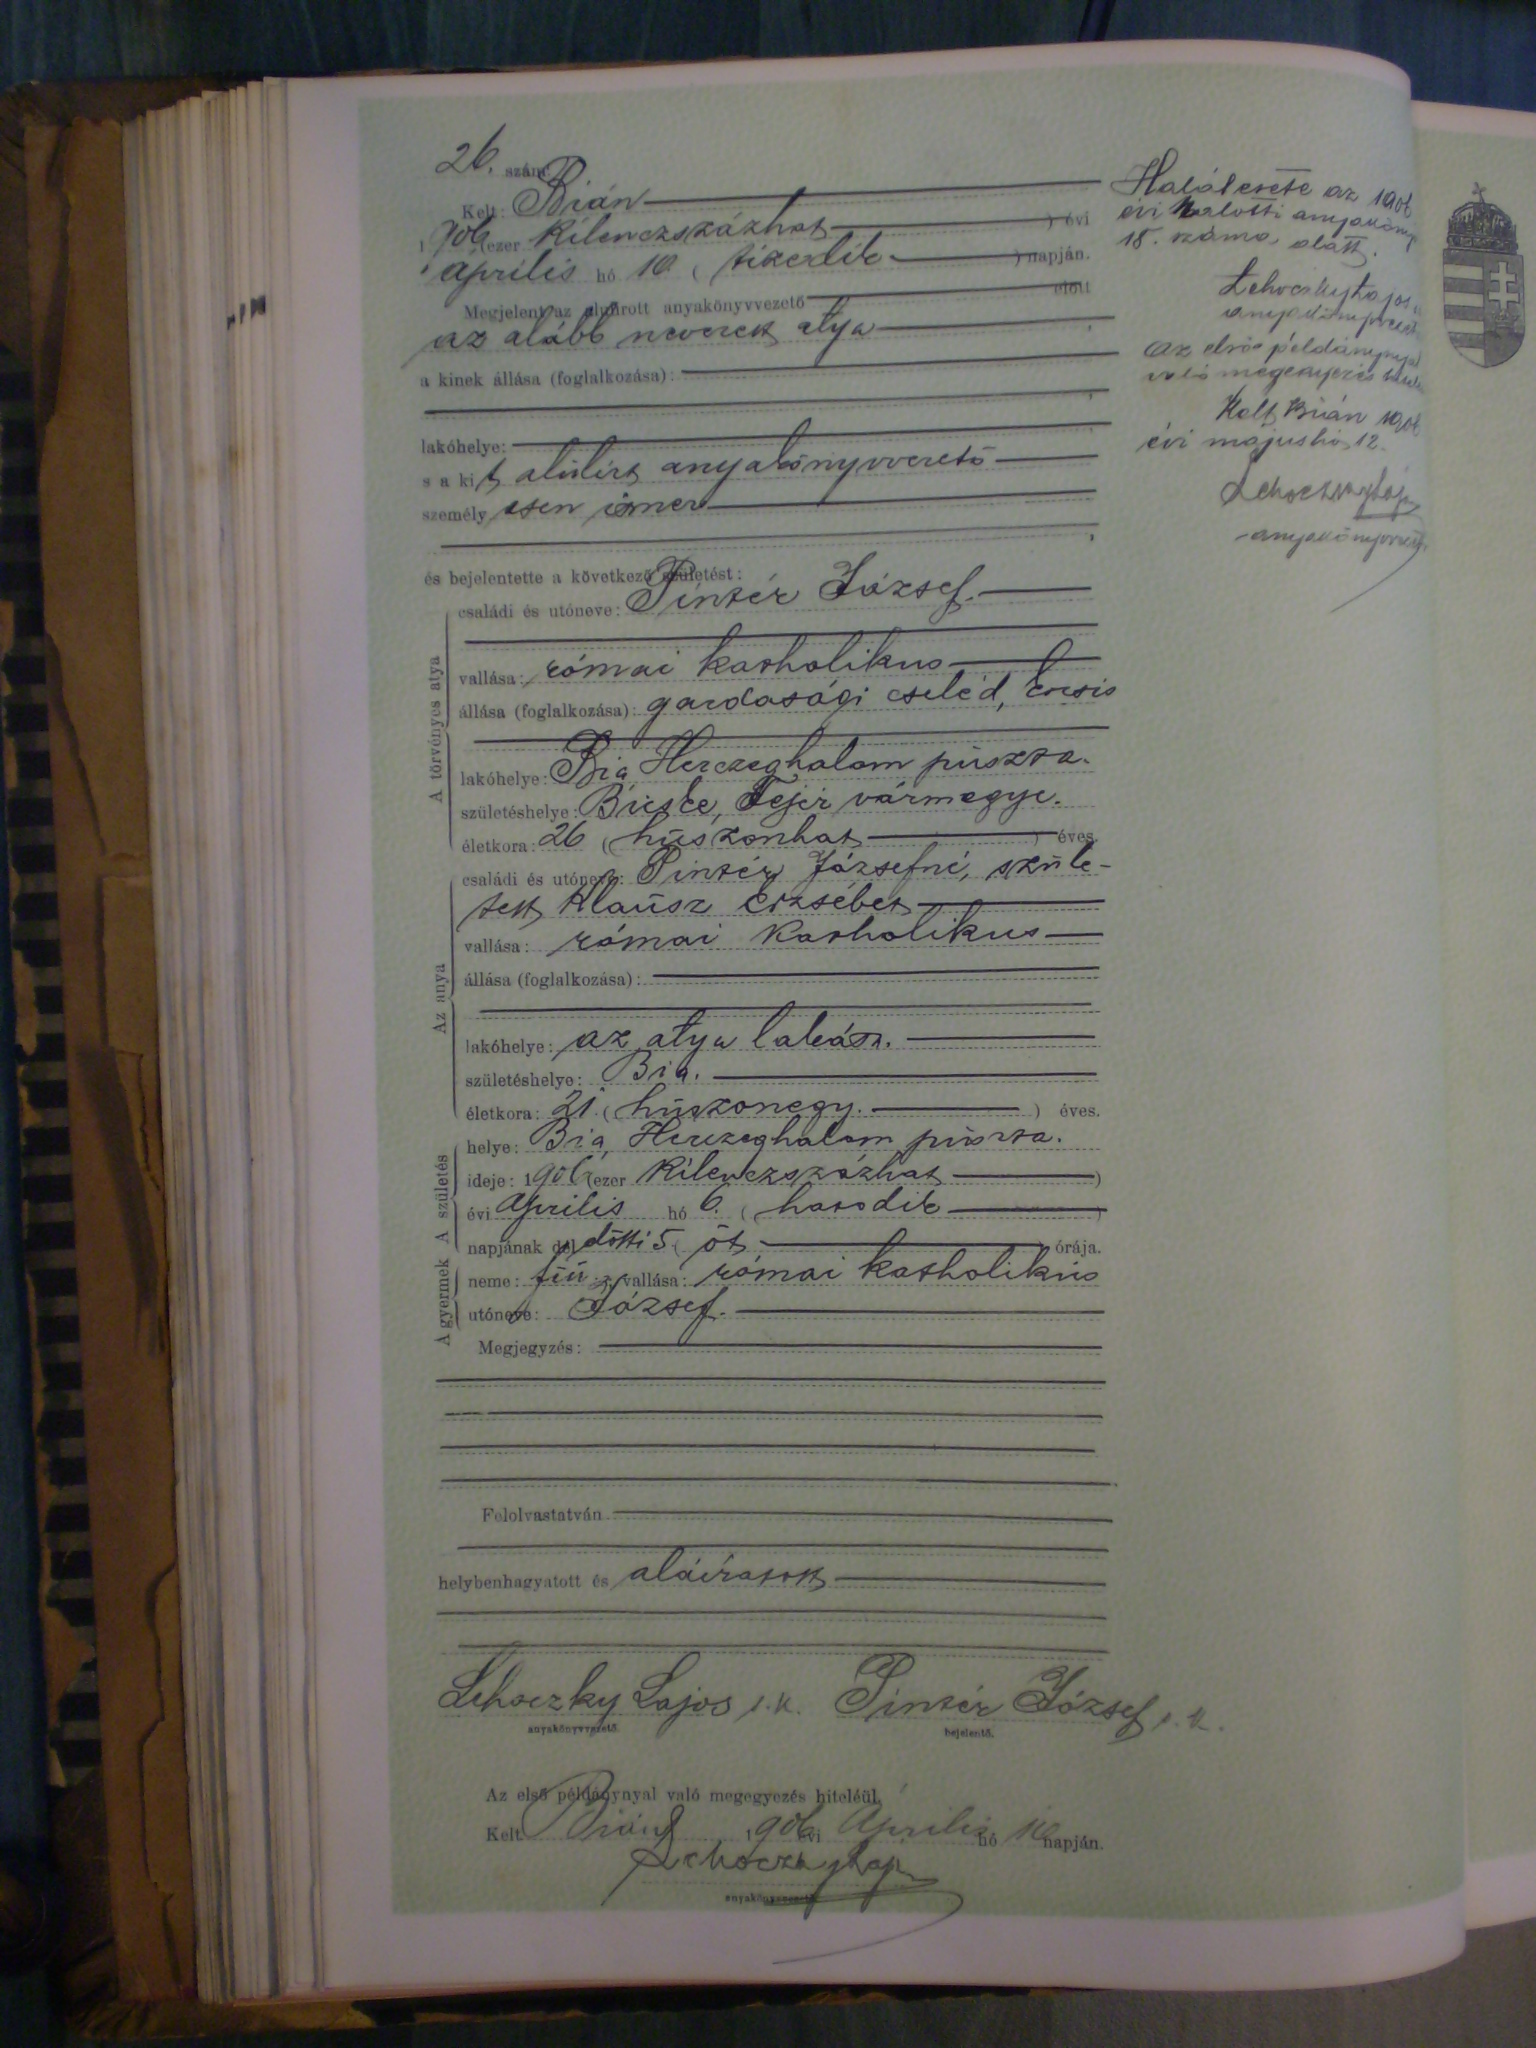 26. szám.
Kelt: Bián
1906 (ezer kilenczszázhat) évi
április hó 10 (tizedik) napján.
Megjelent az alulirott anyakönyvvezető előtt
az alább nevezett atya
a kinek állása (foglalkozása):
lakóhelye:
s a kit alulirt anyakönyvvezető
személyesen ismer
és bejelentette a következő születést:
A törvényes atya
családi és utóneve: Pintér József.
vallása: római katholikus
állása (foglalkozása): gazdasági cseléd, kocsis
lakóhelye: Bia, Herczeghalom púszta.
születéshelye: Bicske, Fejér vármegye.
életkora: 26 (húszonhat) éves.
Az anya
családi és utóneve: Pintér Józsefné, szüle-
tett Klaúsz Erzsébet
vallása: római katholikus
állása (foglalkozása):
lakóhelye: az atya lakása.
születéshelye: Bia.
életkora: 21 (húszonegy.) éves.
A születés
helye: Bia, Herczeghalom púszta.
ideje: 1906 (ezer kilenczszázhat)
évi április hó 6. (hatodik)
napjának dél előtti 5 (öt) órája.
A gyermek
neme: fiú vallása: római katholikús
utóneve: József.
Megjegyzés:
Felolvastatván
helybenhagyatott és aláíratott
Lehoczky Lajos s.k. Pintér József s.k.
anyakönyvvezető. bejelentő.
Az első példánynyal való megegyezés hiteléül.
Kelt Bián 1906 évi április hó 10 napján.
Lehoczky Lajos
anyakönyvvezető.
Halálesete az 1906
évi halotti anyakönyv
18. száma alatt.
Lehoczky Lajos
anyakönyvvezető
Az első példánynyal
való megegyezés
Kelt Bián 1906
évi május hó 12.
Lehoczky Lajos
anyakönyvvezető